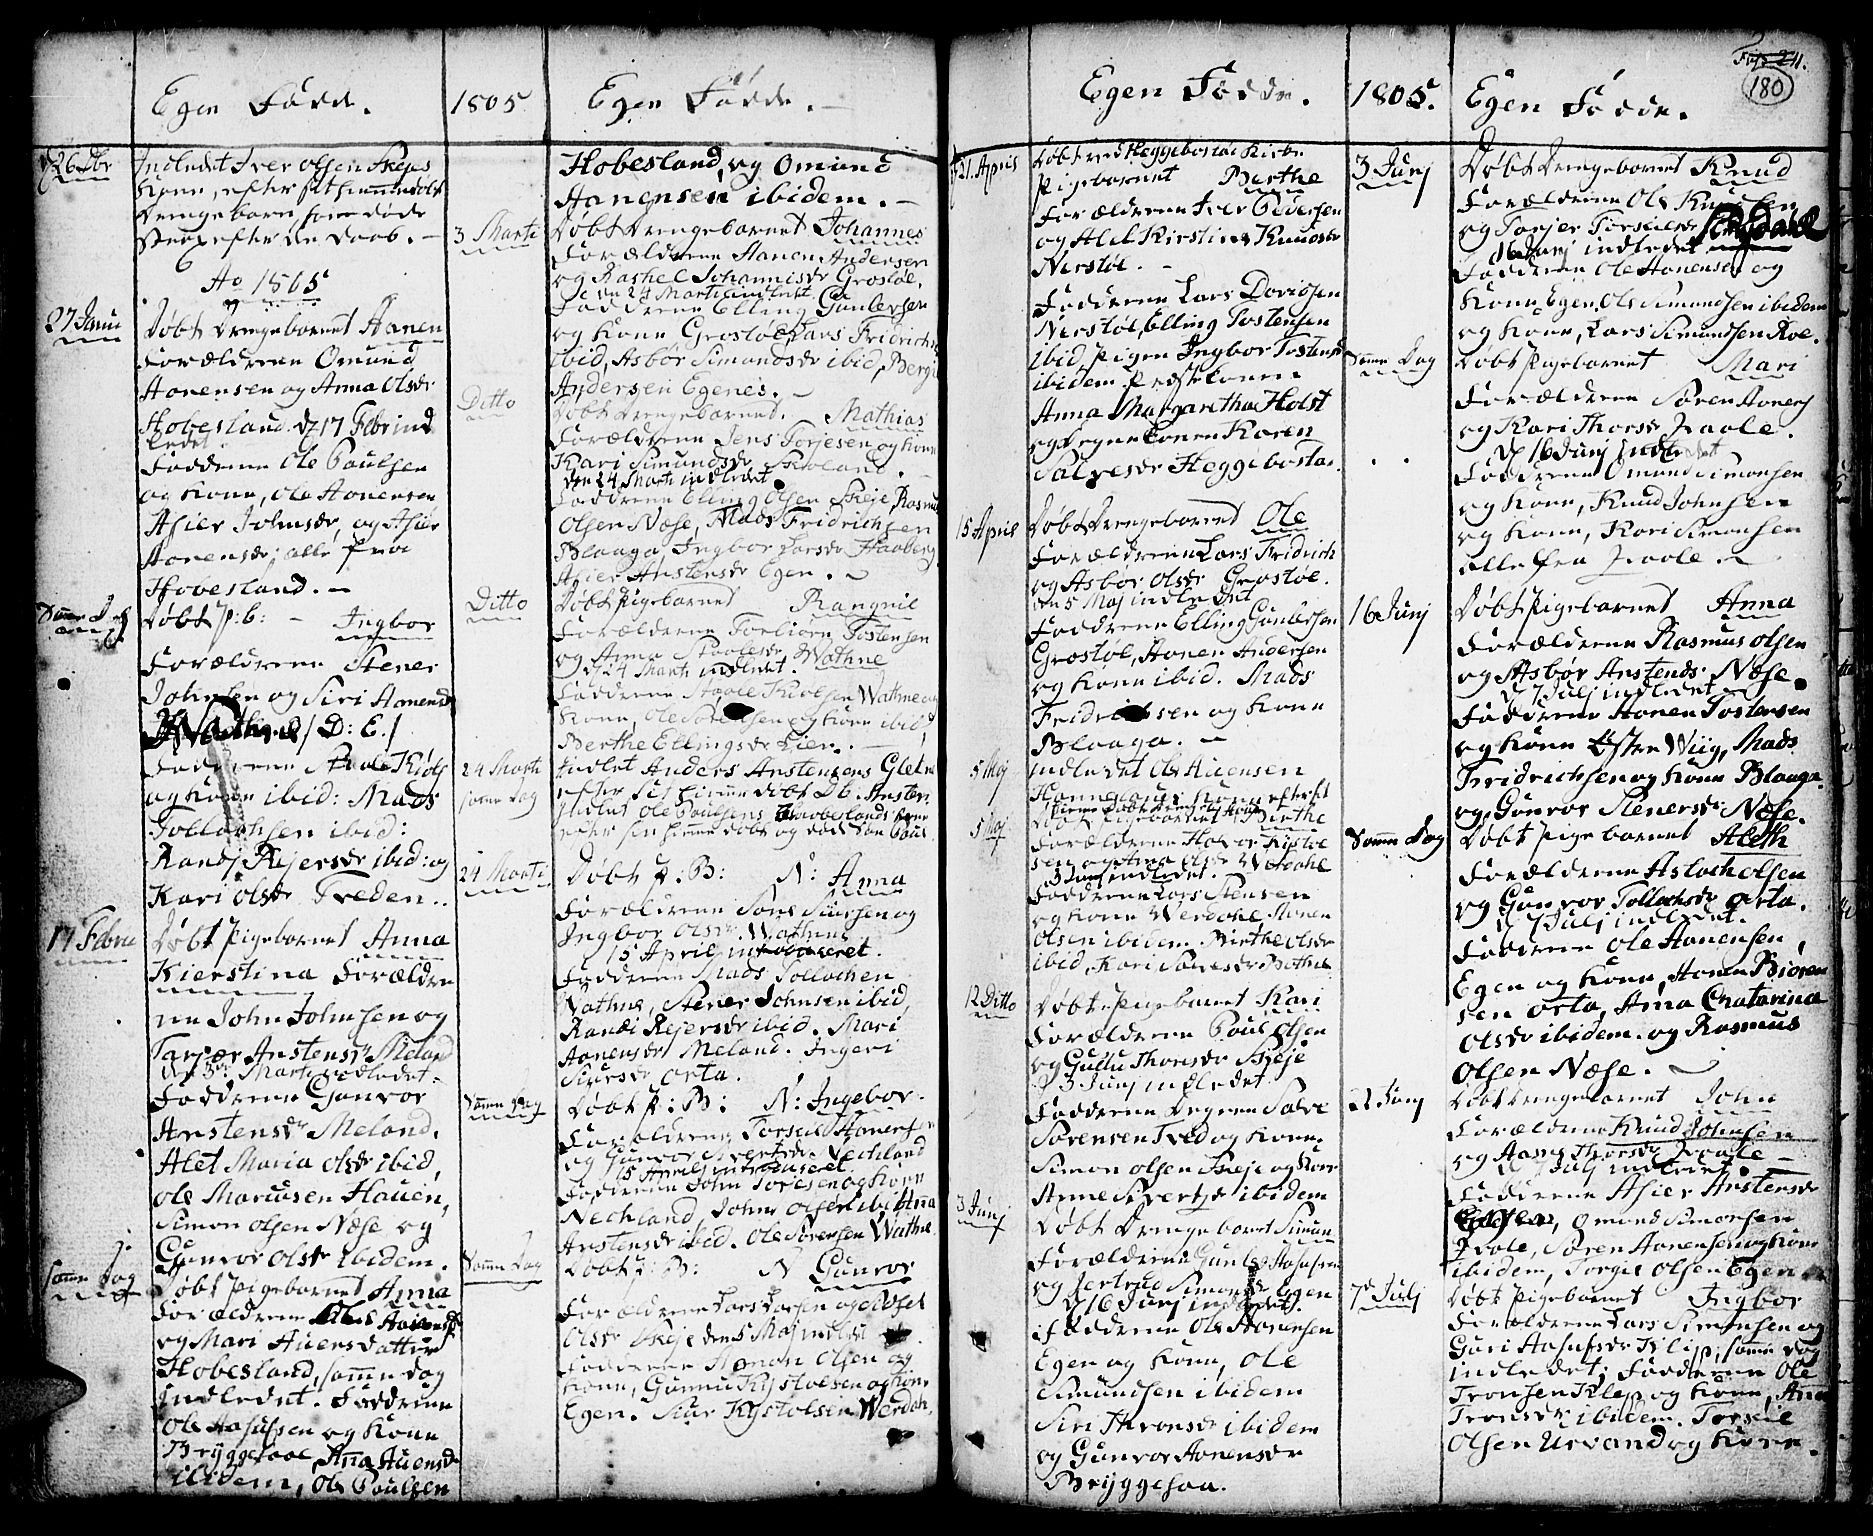 Egen Fødde.
d 26 Dbr
Indledet Iver Olsen Skejes
Kone, efter sit hiemmedøbt
Drengebarn, som døde
strax efter sin Daab.
Ao 1805
27 Janu
Døbt Drengebarnet Aanen
Forældrene Omund
Aanensen og Anna Olsdr
Hobesland. d 17 Febr ind
ledet
Fadderne Ole Poulsen
og Kone, Ole Aanensen
Asier Johnsdr, og Asier
Aanensdr, alle fra
Hobesland.
Samme Dag
Døbt P: b: Ingbor
Forældrene Stener
Johnsen og Siri Aanensdr
Wathne / D: E: /
Fadderne Staale Kiøls
og Kone ibid: Mads
Tollachsen ibid:
Randj Rejersdr ibid: og
Kari Olsdr Treden.
17 Febru
Døbt Pigebarnet Anna
Kierstina Forældre
ne John Johnsen og
Tarjær Anstensdr Meland
den 3de Marti indledet
Fadderne Gunvor
Anstensdr Meland,
Alet Maria Olsdr ibid,
Ole Marcusen Hauen,
Simon Olsen Næse og
Gunvor Olsdr ibidem.
Samme Dag
Døbt Pigebarnet Anna
Forældrene Aanensen
og Mari Auensdatter
Hobesland, samme Dag
Indledet. Fadderne
Ole Aasulfsen og Kone
Bryggesaae, Anna Auensdr
ibidem, Ole Poulsen
1805
Egen Fødde.
Hobesland, og Omund
Aanensen ibidem.
3 Marti
Døbt Drengebarnet Johannes
Forældrene Aanen Andersen
og Rachel Johannisdr Grostøl,
den 24 Marti indledet
Fadderne Elling Gunlersen
og Kone Grostøl, Lars Fridrichs
ibid, Asbør Simondsdr ibid, Bergit
Andersen Egenes.
Ditto
Døbt Drengebarnet. Mathias
Forældrene Jens Torjesen og Kone
Kari Simundsdr Skoland.
den 24 Marti indledet
Fadderne Elling Olsen Skeje, Rasmus
Olsen Næse, Mads Fridrichsen
Blaaga, Ingbor Larsdr Haaberg
Asier Anstensdr Egen.
Ditto
Døbt Pigebarnet Rangnil
Forældrene Torbiørn Tostensen
og Anna Staalesdr Wathne
d 24 Marti indledet.
Fadderne Staale Kiølsen Wathne og
Kone, Ole Sørensen og Kone ibid,
Berthe Ellingsdr Lien.
24 Marti
Indlet Anders Anstensens Gletne
efter sit hiemmedøbt Db. Ansten.
samme Dag
Indlet Ole Poulsens Haabeslands Kone
efter sin hiemmedøbt og død Søn Poul
24 Marti
Døbt P: B: N: Anna
Forældrene Sone Siursen og
Ingbor Olsdr Wathne
15 April introduceret.
Fadderne Mads Tollachsen
Wathne, Stener Johnsen ibid,
Randi Rejersdr ibid. Mari
Aanensdr Meland. Ingeri
Siursdr Orta.
Samme Dag
Døbt P: B: N: Ingebor.
Forældrene Torkeil Aanensen
og Gunvor Sivertsdr Nechland
15 April introduceret.
Fadderne John Torjesen og Kone
Nechland, John Olsen ibid, Anna
Anstensdr ibid. Ole Sørensen Wathne
Samme Dag
Døbt P: B: N Gunvor
Forældrene Lars Larsen og Aadsel
Olsdr Skeje den 5 Maj indledt
Fadderne Aanon Olsen og
Kone, Gunnu Kystolsen og Kone
Egen. Siur Kystolsen Werdahl,
Egen Fødde.
d 21. April
Døbt ved Heggebostøe Kirke
Pigebarnet Berthe
Forældrene Iver Pedersen
og Alet Kirstina Knudsdr
Nerstøl.
Fadderne Lars Davidsen
Nerstøl, Elling Tostensen
ibid Pigen Ingbor Tostensdr
ibidem Præstekonen
Anna Margaretha Holst
og Degnekonen Karen
Salvesdr Heggebostøe.
15 April
Døbt Drengebarnet Ole
Forældrene Lars Fridrich
og Asbør Olsdr Grostøl.
den 5 Maj indledet
Fadderne Elling Gunlersen
Grostøl, Aanen Andersen
og Kone ibid. Mads
Fridrichsen og Kone
Blaaga.
5 Maj
Indledet Ole Auensen
Kone efter sit
5 Maj
Døbt Pigebarnet Birthe
Forældrene Haavor Kystol
sen og Anna Olsdr Werdahl
3 Juni indledet.
Fadderne Lars Stensen
og Kone Werdahl, Aanen
Olsen ibidem Birthe Olsdr
ibid, Kari Salvesdr Bethne
12 Ditto
Døbt Pigebarnet Kari
Forældrene Poul Olsen
og Gullu Thorsdr Skeje
d 3 Junj indledet
Fadderne Degnen Salve
Sørensen Tred og Kone.
Simon Olsen Skeje og Kone
Anne Sivertsdr ibidem
3 Junj
Døbt Drengebarnet Simun
Forældrene Gunle Aasulfsen
og Jertrud Simonsdr Egen
d 16 Junj indledet
Fadderne Ole Aanensen
Egen og Kone, Ole
Simundsen ibidem
Siri Thronsdr ibidem
og Gunvor Aanensdr
Bryggesaa.
1805.
Egen Fødde.
180
3 Junj
Døbt Drengebarnet Knud
Forældrene Ole Knudsen
og Torjer Torkeilsdr
16 Junj indledet
Fadderne Ole Aanensen og
Kone Egen, Ole Simundsen ibidem
og Kone, Lars Simundsen Roe.
Samme Dag
Døbt Pigebarnet Mari
Forældrene Søren Aanens
og Kari Thorsdr Fraale.
d 16 Junj indledet
Fadderne Omund Simonsen
og Kone, Knud Johnsen
og Kone, Kari Simonsen
alle fra Fraale.
16 Junj
Døbt Pigebarnet Anna
Forældrene Rasmus Olsen
og Asbør Anstensdr Næse.
d 7 Julj indledet
Fadderne Aanen Tostensen
og Kone Østre Wiig, Mads
Fridrichsen og Kone Blaaga
og Gunvor Stenersdr Næse.
Samme Dag
Døbt Pigebarnet Aleth
Forældrene Aslach Olsen
og Gunvor Tollachsdr Orta.
d 7 Julj indledet.
Fadderne Ole Aanensen,
Egen og Kone, Aanen Biøren
sen Orta, Anna Cnatarina
Olsdr ibidem. og Rasmus
Olsen Næse.
21 Junj
Døbt Drengebarnet John
Forældrene Knud Johnsen
og Aanne Thorsdr Fraale
d 7 Julj indledet.
Fadderne Asier Anstensdr
Omond Simonsen
Fraale, Søren Aanensen og Kone
ibidem, Torgie Olsen Egen
7d Julj
Døbt Pigebarnet Ingbor
Forældrene Lars Simonsen og
Guri Aasulfsdr Klep, samme Dag
indledet; Fadderne Ole
Tronsen Klep og Kone, Anna
Tronsdr ibidem. Torkeil
Olsen Urvand og Kone.